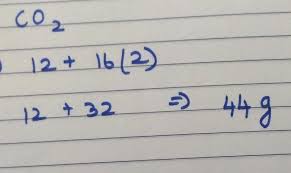 CO₂
12 + 16(2)
12 + 32 ⇒ 44 g